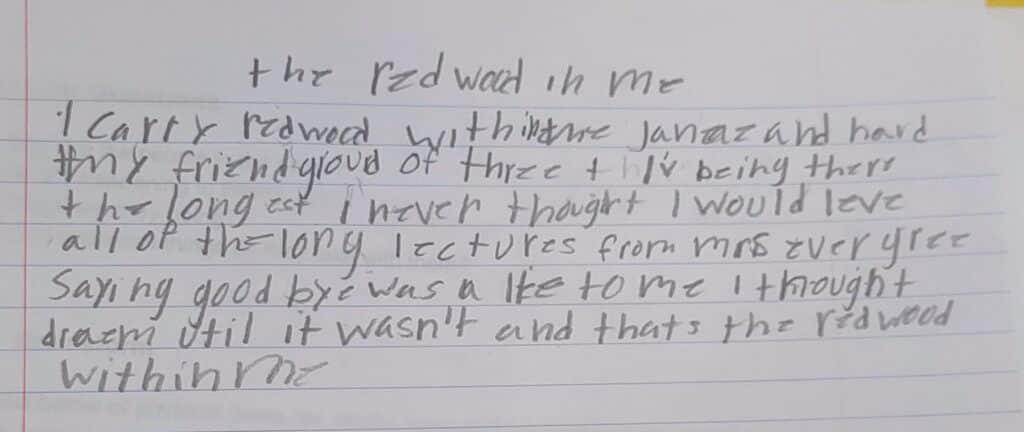 the redwood in me
I Carry redwood within me and hard
my friend group of three being there
the longest I never thought I would leve
all of the long lectures from mrs evergree
Saying good bye was a to me I thought
util it wasn't and thats the redwood
within me